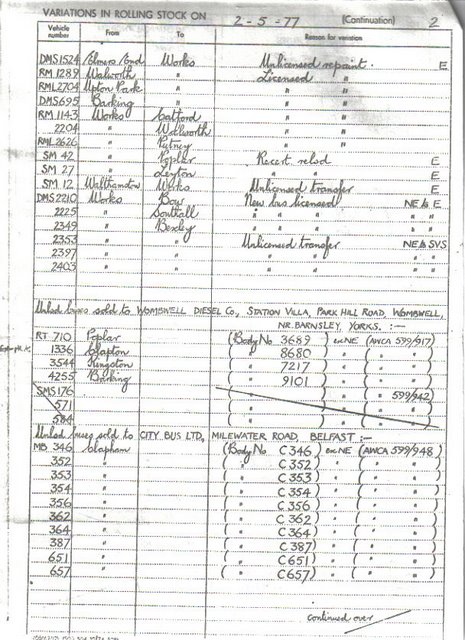 VARIATIONS IN ROLLING STOCK ON 2-5-77 (Continuation) 2
Vehicle number From To Reason for variation
DMS1524 Elmers End Works Unlicensed repaint. E
RM 1289 Walworth " Licensed "
RML2704 Upton Park " " "
DMS695 Barking " " "
RM 1143 Works Catford " "
2204 " Walworth " "
RML2626 " Putney " "
SM 42 " Poplar Recert relsd E
SM 27 " Leyton " " E
SM 12 Walthamstow Works Unlicensed transfer E
DMS2210 Works Bow New bus licensed NE to E
2225 " Southall " " " " "
2349 " Bexley " " " " "
2353 " " Unlicensed transfer NE to SVS
2397 " " " " " "
2403 " " " " " "
Unlsd buses sold to WOMBWELL DIESEL Co., STATION VILLA, PARK HILL ROAD, WOMBWELL,
NR. BARNSLEY, YORKS. :—
RT 710 Poplar (Body No 3689) ex NE (AWCA 599/917)
1336 Clapton ( " 8680) " ( " " )
3544 Kingston ( " 7217) " ( " " )
4255 Barking ( " 9101) " ( " " )
SMS176 " " 599/942)
571 " " "
584 " " "
Unlsd buses sold to CITY BUS LTD, MILEWATER ROAD, BELFAST :—
MB 346 Clapham (Body No C346) ex NE (AWCA 599/948)
352 " ( " C352) " ( " " )
353 " ( " C353) " ( " " )
354 " ( " C354) " ( " " )
356 " ( " C356) " ( " " )
362 " ( " C362) " ( " " )
364 " ( " C364) " ( " " )
387 " ( " C387) " ( " " )
651 " ( " C651) " ( " " )
657 " ( " C657) " ( " " )
continued over